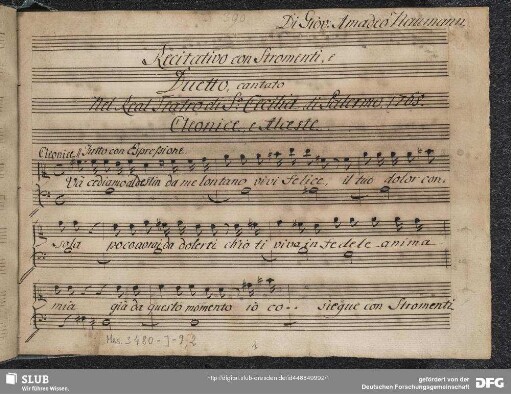 Di Giov. Amadeo Naumann.
Recitativo con Stromenti, e
Duetto, cantato
Nel Real Teatro di Sta Cecilia di Palermo 1768.
Cleonice, e Alceste
Cleonice Tutto con Espressione
Và cediamo al destin da me lontano vivi felice, il tuo dolor con,
sola poco avrai da dolerti ch'io ti viva infedele anima
mia già da questo momento io co.. siegue con Stromenti
Mus. 3480-J-8,2
1
SLUB
Wir führen Wissen.
gefördert von der
Deutschen Forschungsgemeinschaft
DFG